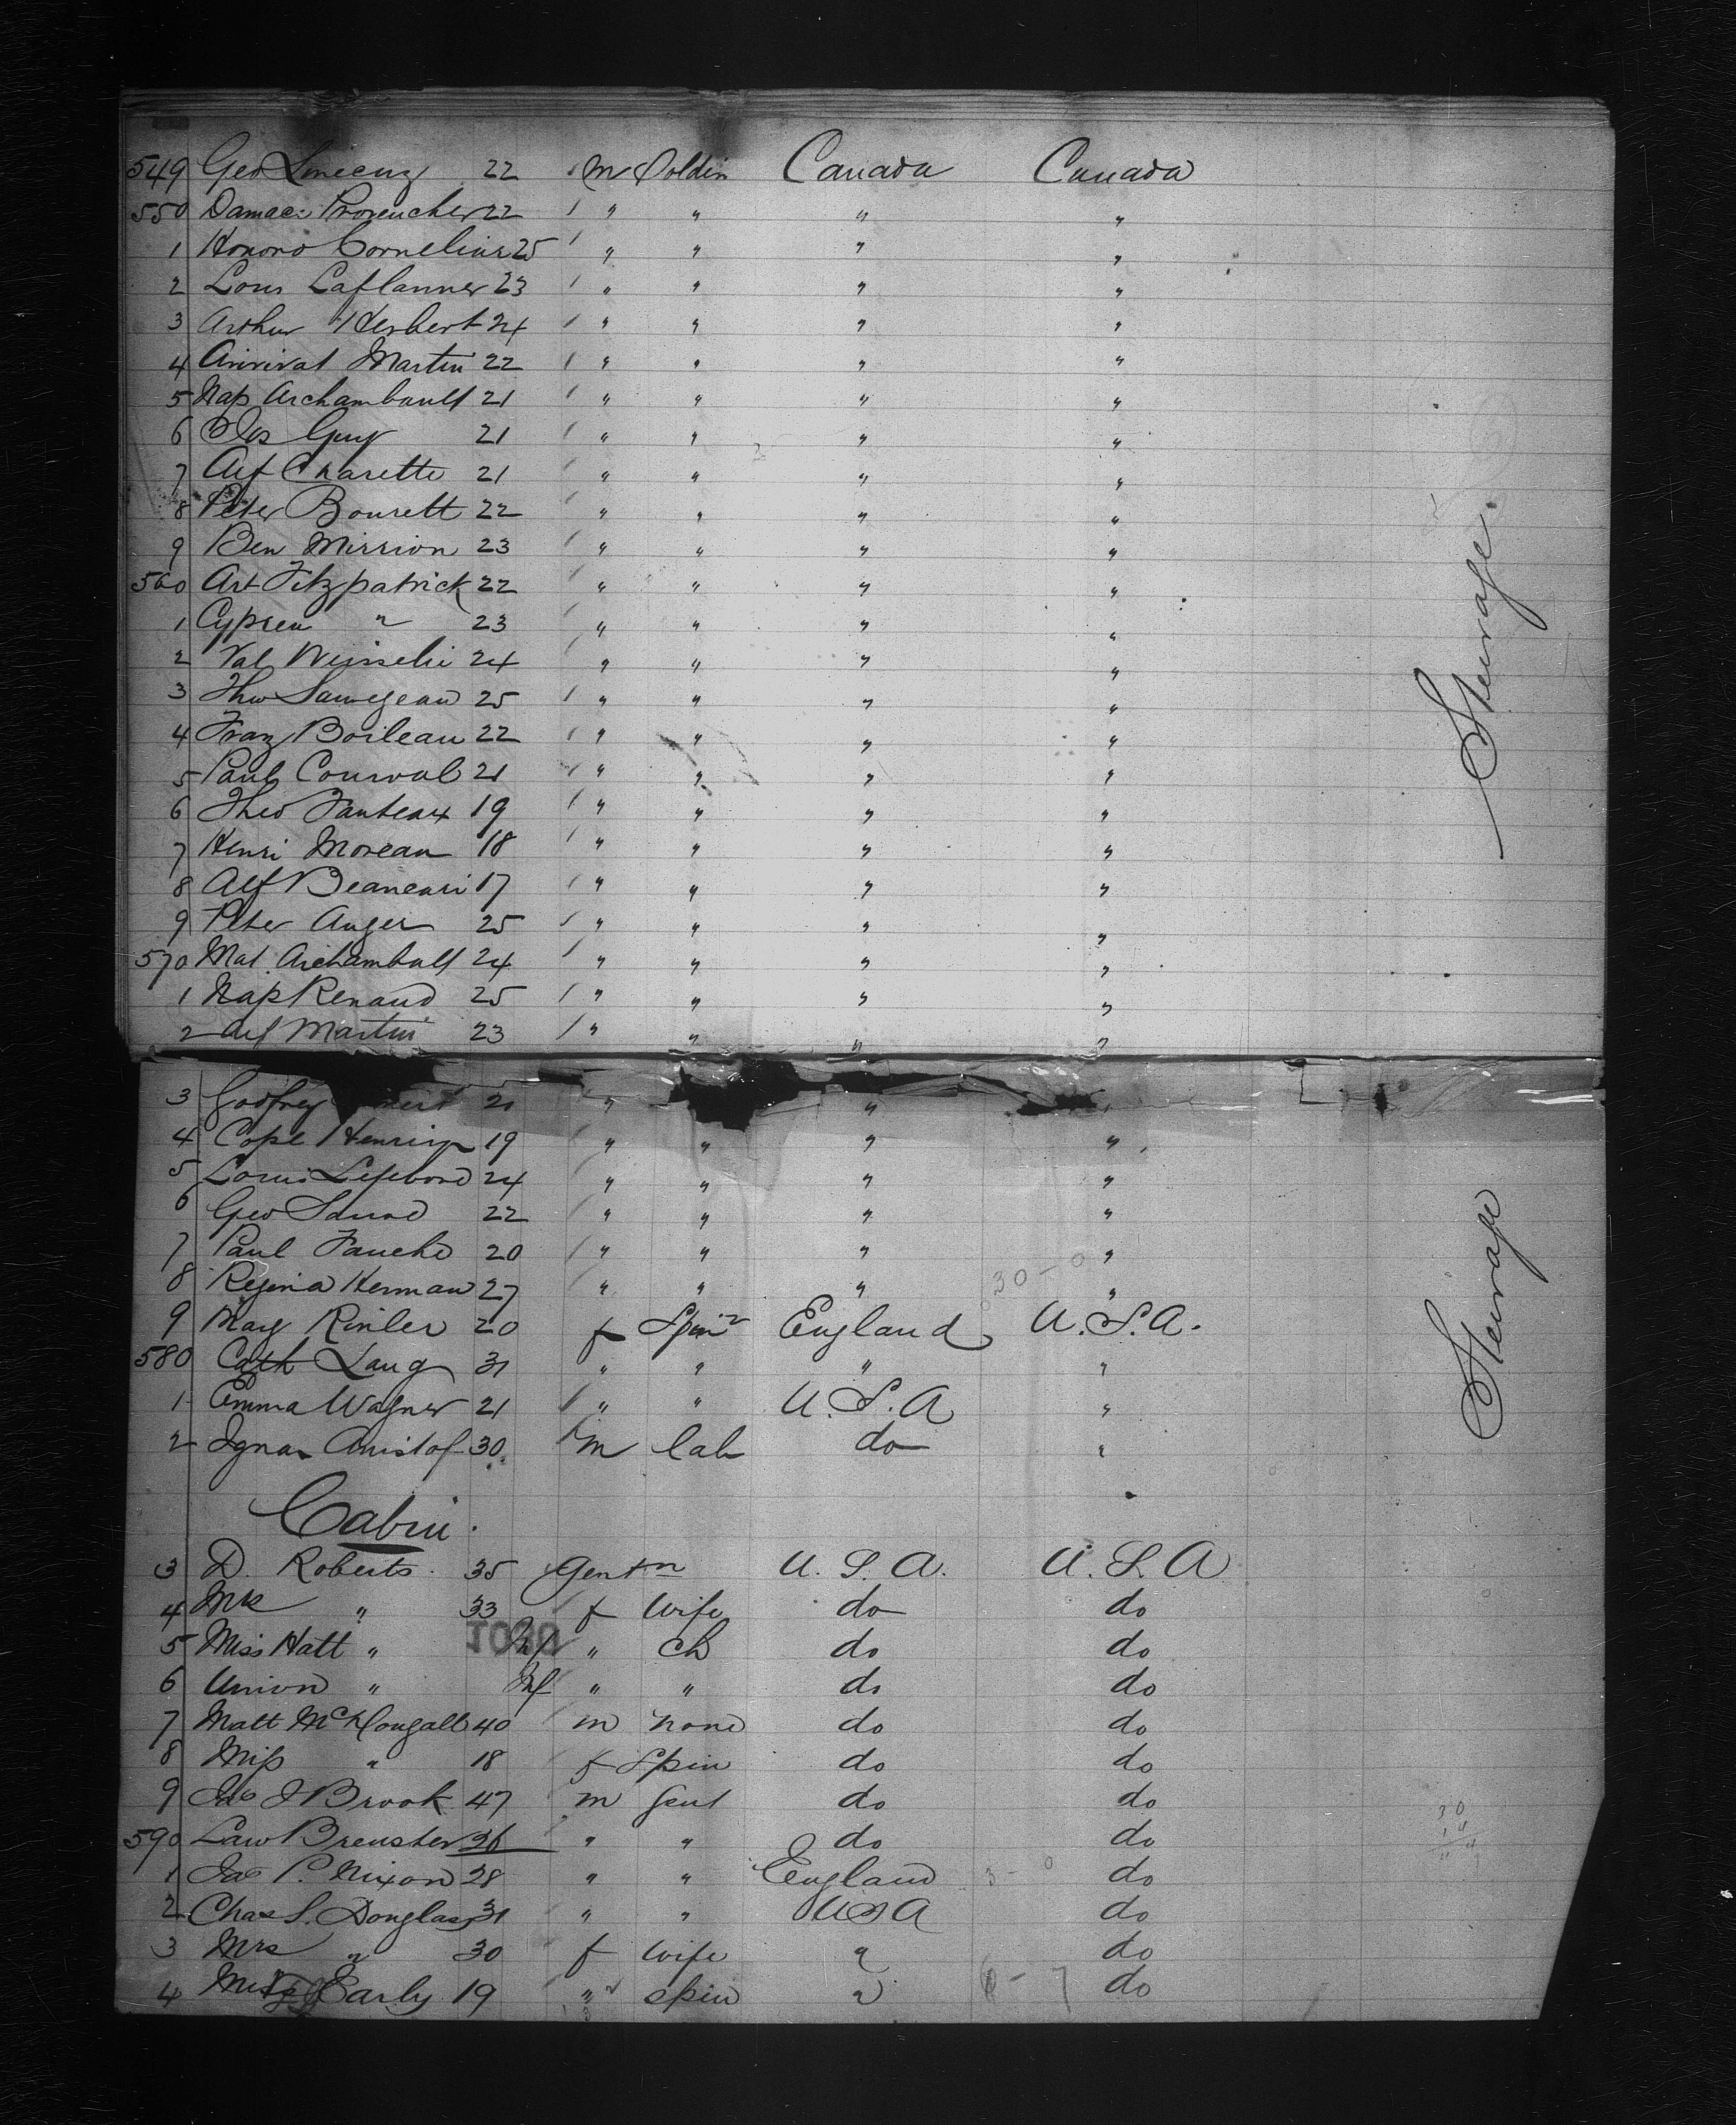 549 Geo 22 m Soldier Canada Canada
550 Damac: Provencher 22 / " " " "
1 Honoro Cornelius 25 / " " " "
2 Louis Laflamer 23 / " " " "
3 Arthur Herbert 24 / " " " "
4 Martin 22 / " " " "
5 Nap Archambault 21 / " " " "
6 Guy 21 / " " " "
7 Alf Charette 21 " " " "
8 Peter Bourett 22 / " " " "
9 Ben Mission 23 / " " " "
560 Art Fitzpatrick 22 / " " " "
1 Cypren " 23 / " " " "
2 Val 24 / " " " "
3 Theo Sauvegeau 25 / " " " "
4 Franz Boileau 22 / " " " "
5 Paul Courval 21 / " " " "
6 Theo Fauteax 19 / " " " "
7 Henri Moreau 18 / " " " "
8 Alf 17 / " " " "
9 Peter Auger 25 / " " " "
570 Mat. Archambalt 24 / " " " "
1 Nap Renaud 25 / " " " "
2 Alf Martin 23 / " " " "
3 Godfrey 20 " " "
4 Cope 19 / " " " "
5 Louis Lefebvre 24 / " " " "
6 Geo 22 / " " " "
7 Paul Fauche 20 / " " " "
8 Regina Herman 27 / " " " "
9 Mary Rinler 20 f Spinr England U.S.A.
580 Cath Lang 31 " " " "
1 Emma Wagner 21 / " " U.S.A "
2 Ignas Anistof 30 / m lab do "
Cabin.
3 D. Roberts. 35 Gentn U.S.A. U.S.A
4 Mrs " 33 / f Wife do do
5 Miss Hatt " Inf " ch do do
6 Union " Inf " " do do
7 Matt McDougall 40 / m none do do
8 Miss " 18 / f Spin do do
9 Jas J Brook 47 m Gent do do
590 Law Brewster 26 / " " do do
1 Jas P. Nixon 28 " " England do
2 Chas S. Douglass 31 " " USA do
3 Mrs " 30 f wife " do
4 Early 19 " spin " do
Steerage.
Steerage